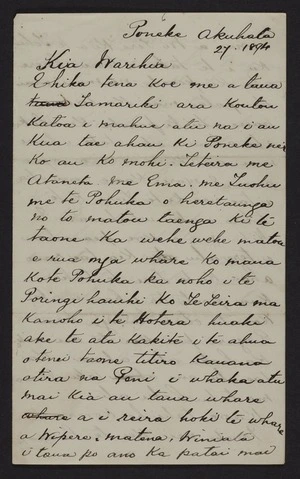 Poneke Akuhata
27. 1894
Kia Warihia
E hika tena koe me a taua
taua Tamariki ara Koutou
Katoa i mahue atu na i au
Kua tae ahau ki Poneke nei
ko au ko mohi. Teteira me
Ataneta me Ema. me Tuohu
me te Pohuka o heretaunga
no to matou taenga ki te
taone Ka wehe wehe matou
e rua nga whare ko maua
Kote Pohuka ka noho i te
Poringi hauihi Ko TeTeira ma
Kanoho i te Hotera huaki
ake te ata Kakite i te ahua
o tenei taone titiro Kauana
otira na Peni i whaka atu
mai Kia au taua whare
a i reira hoki te whare
a Wipere. matena, Winiata
i taua po ano Ka patai mai